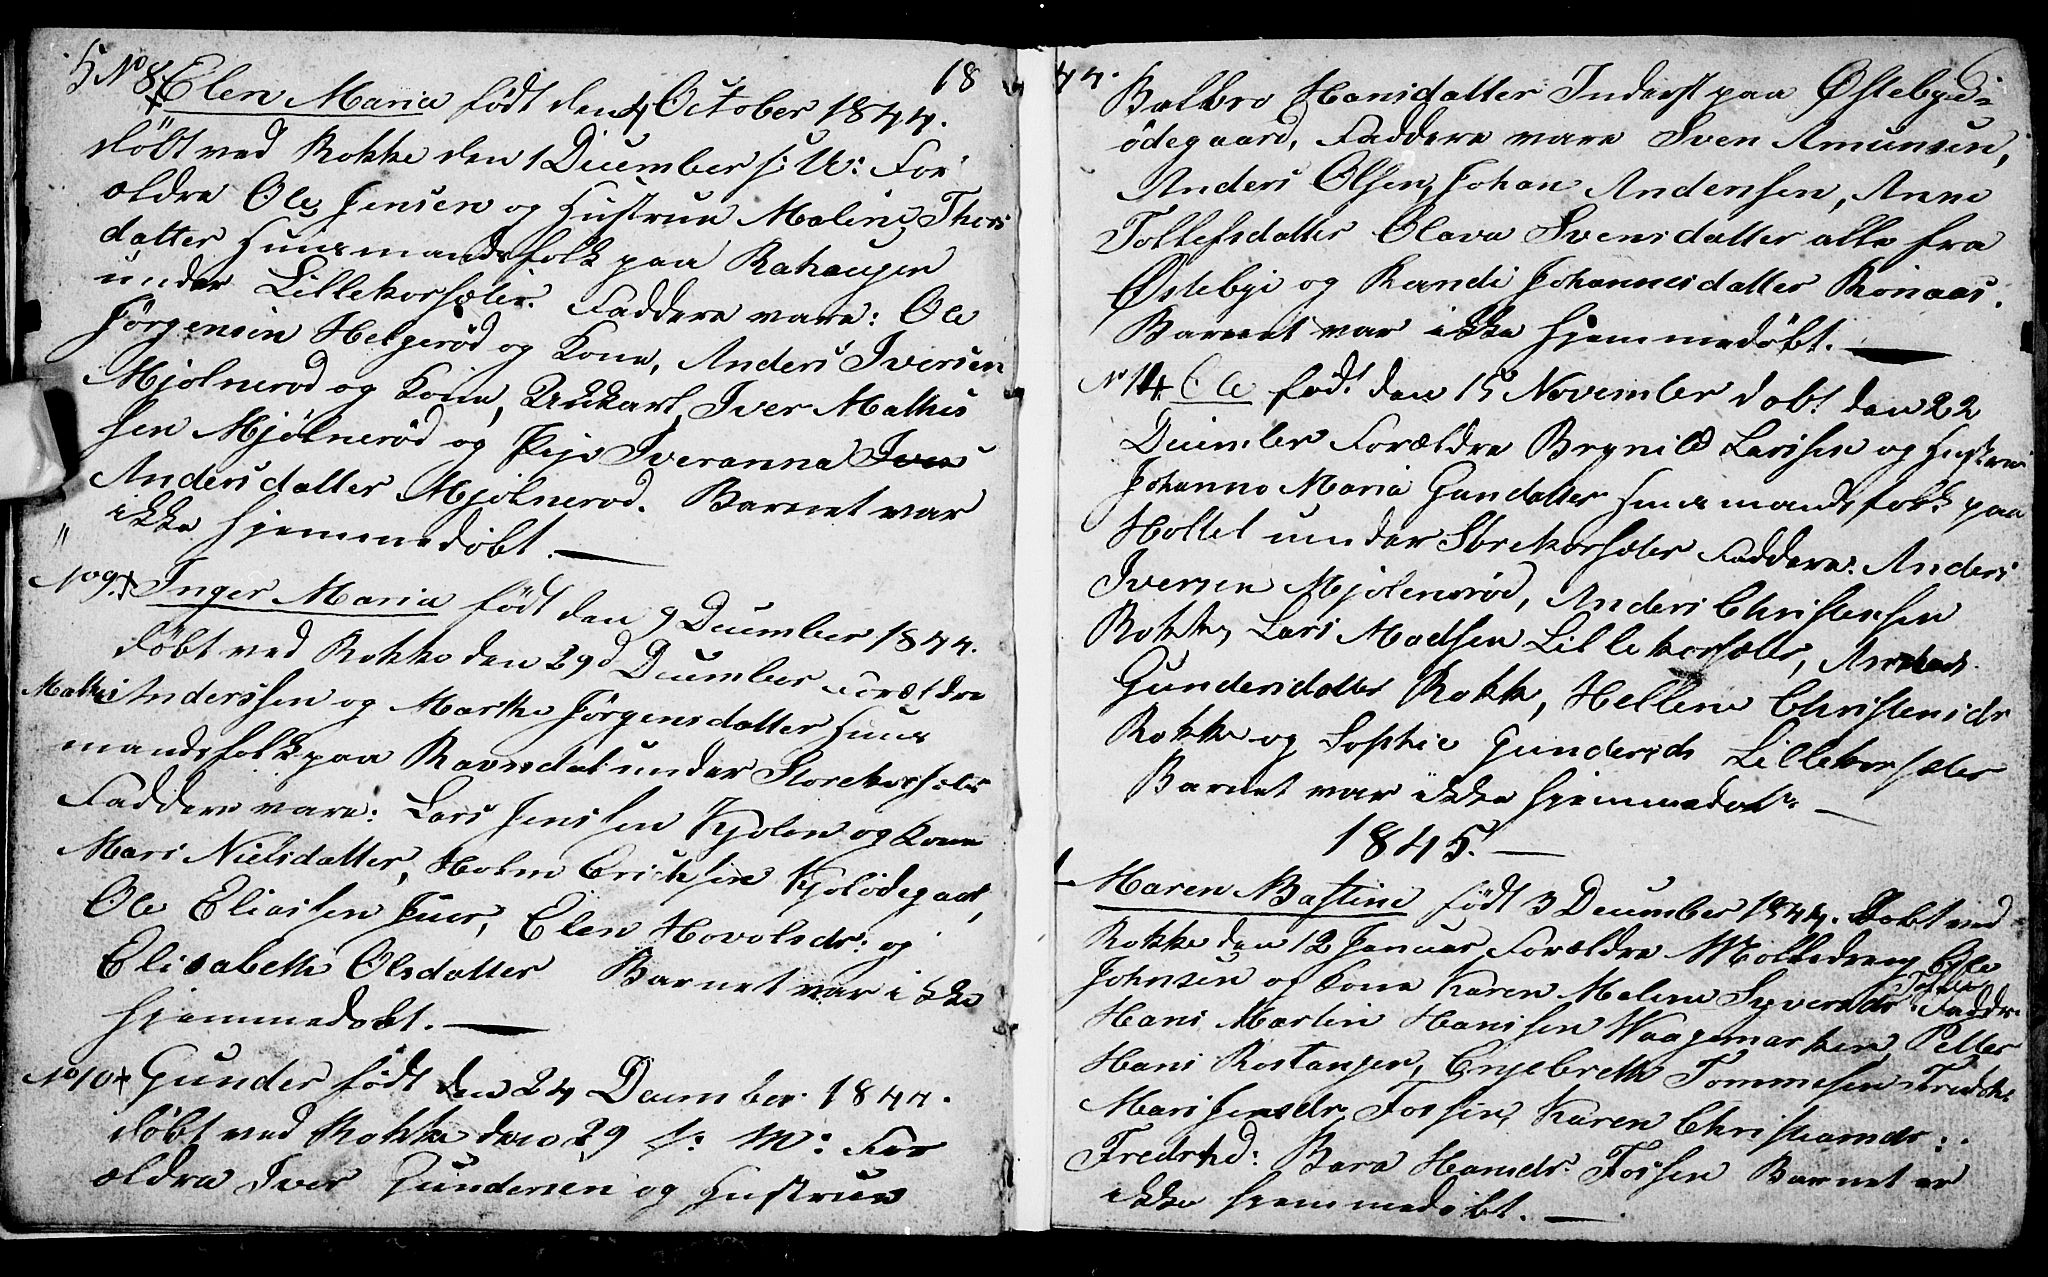 5 No 8 Elen Maria født den 4 October 1844.
18
døbt ved Rokke den 1 December s: A: For
ældre Ole Jensen og Hustrue Maline Thors
datter Huusmandsfolk paa Rahaugen
under Lillekorsæter. Faddere vare: Ole
Jörgensen Helgerød og Kone, Anders Iversen
Mjølnerød og Kone, Ungkarl Iver Mathis
sen Mjølnerød og Pige Iveranna Ivers
Andersdatter Mjølnerød. Barnet var
ikke hjemmedøbt. —
No 9. Inger Maria født den 9 December 1844.
døbt ved Rokke den 29d December Forældre
Mathis Anderssen og Marthe Jörgensdatter Huus
mandsfolk paa Ravndal under Storekorsæter
Faddere vare: Lars Jenssen Kjølen og Kone
Mari Nielsdatter, Holm Ericksen Kjølødegaard,
Ole Eliassen Juer, Elen Hovolsdr: og
Elisabeth Olsdatter Barnet var ikke
hjemmedøbt. —
No 10 Gunder født den 24 December 1844.
døbt ved Rokke den 29 s: M: For
ældre Iver Gundersen og Hustrue
44.
6
Balbro Hansdatter Inderst paa Østebye-
ödegaard, Faddere vare Sven Amunsen,
Anders Olsen, Johan Andersen, Anne
Tollefsdatter Olava Svensdatter alle fra
Østebye og Randi Johannesdatter Rönaas.
Barnet var ikke hjemmedøbt. —
No 14 Ole født den 15 November døbt den 22
December Forældre Brynild Larssen og Hustrue
Johanne Maria Gundatter Huusmandsfolk paa
Holtet under Storekorsæter Faddere: Anders
Iversen Mjølnerød, Anders Christensen
Rokke, Lars Madsen Lillekorsæter,
Gundersdatter Rokke, Hellene Christensdr
Rokke og Sophie Gundersdr Lillekorsæter
Barnet var ikke hjemmedøbt —
1845. —
1 Maren Bastine født 3 December 1844. Døbt ved
Rokke den 12 Januar, Forældre Molledreng Ole
Johnsen og Kone Karen Malene Syversdr Fossen Faddr.
Hans Martin Hanssen Waagemarken, Petter
Hans Rostangen, Engebreth Tommesen Fredrh
Mari Jensdr Fossen, Karen Christiansdr:
Fredrhd: Bara Hansdr. Fossen Barnet er
ikke hjemmedøbt. —